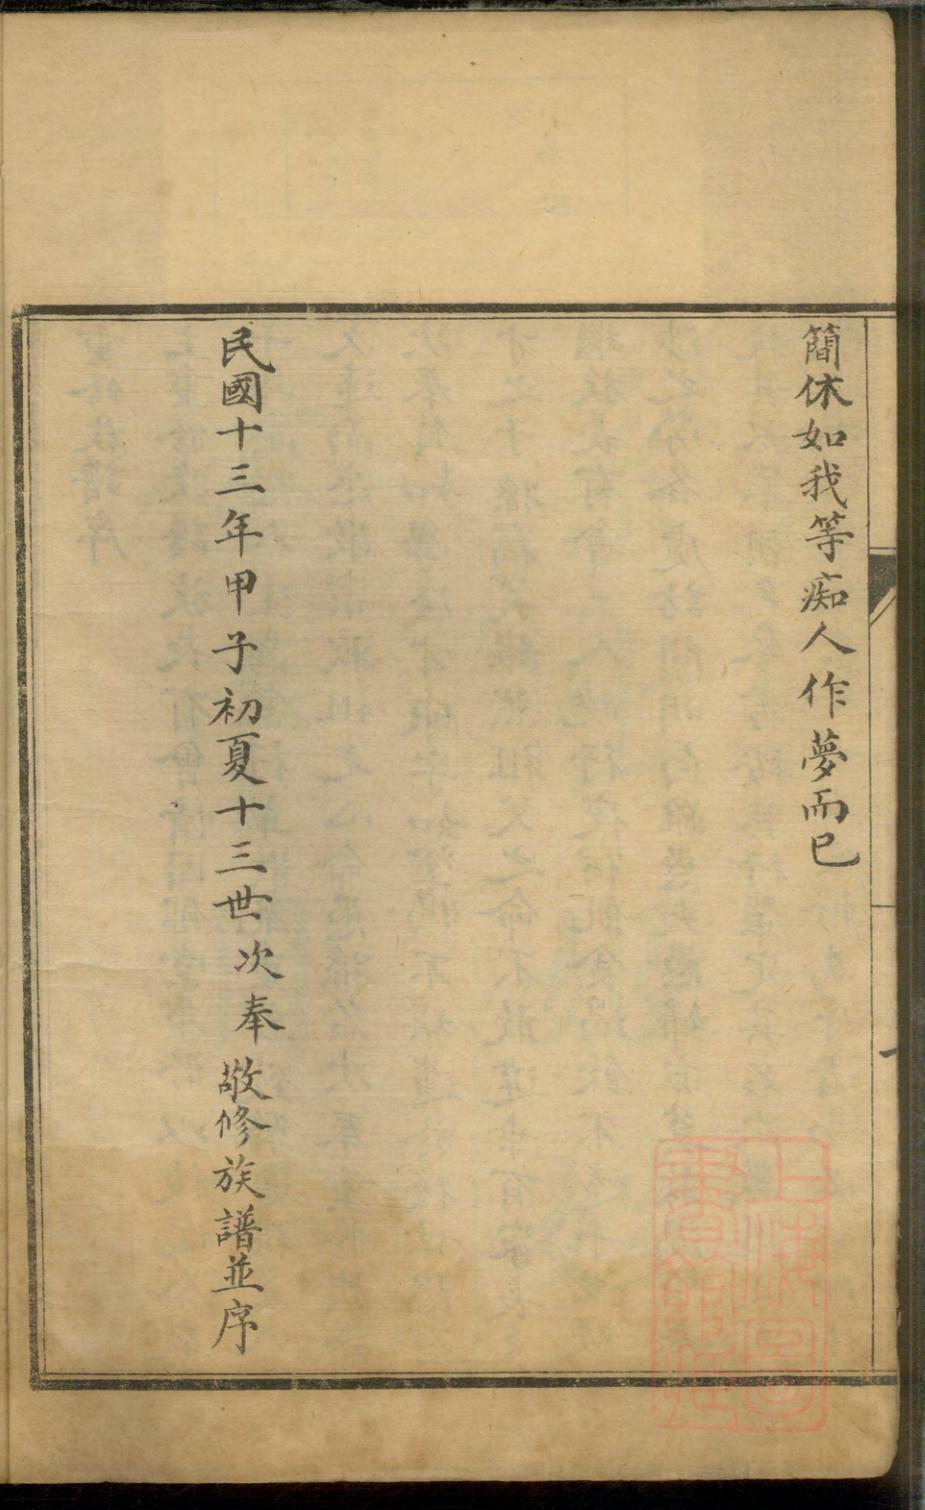 簡休如我等痴人作夢而已
民國十三年甲子初夏十三世次奉敬修族譜並序
上海圖書館藏